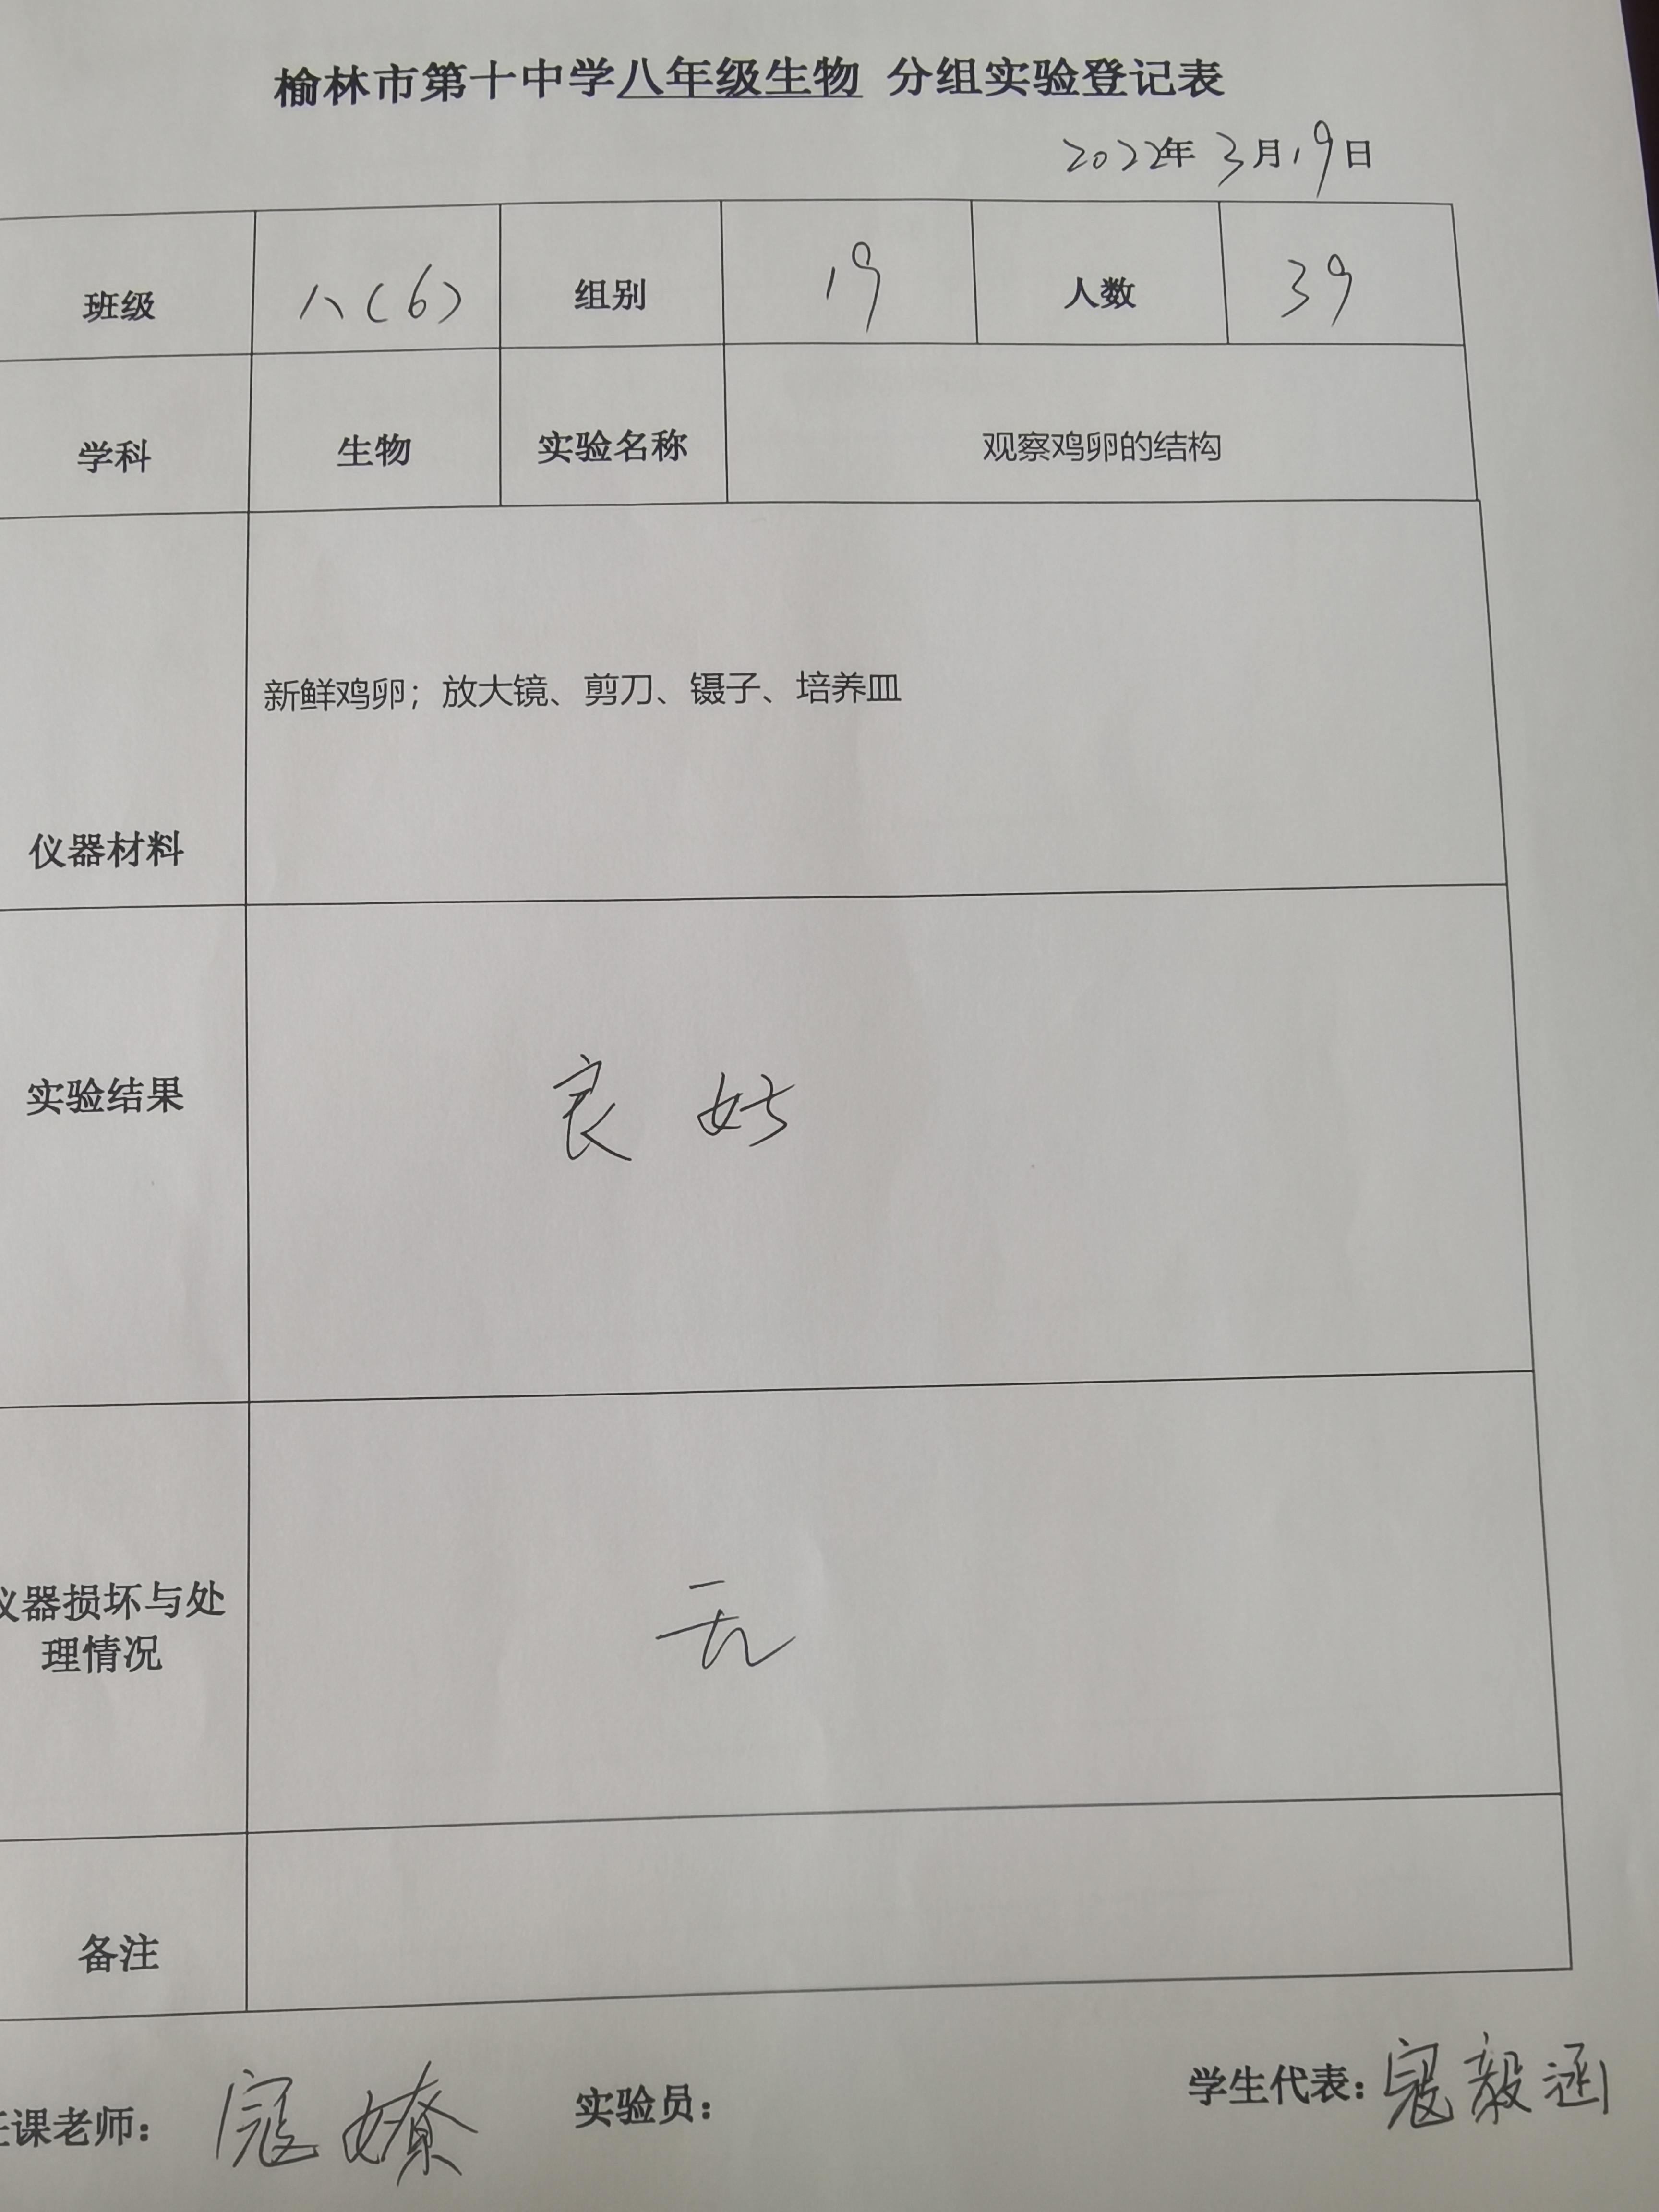 榆林市第十中学八年级生物 分组实验登记表
2022年 3月19日
班级 八(6) 组别 19 人数 39
学科 生物 实验名称 观察鸡卵的结构
新鲜鸡卵；放大镜、剪刀、镊子、培养皿
仪器材料
实验结果 良好
仪器损坏与处
理情况
无
备注
任课老师： 寇嫽 实验员： 学生代表：寇毅涵